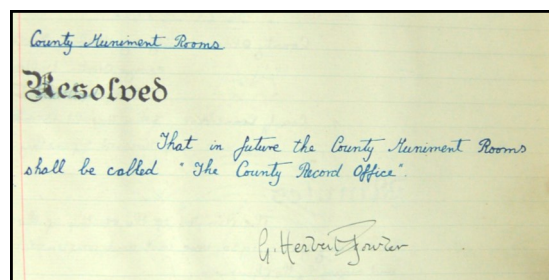 County Muniment Rooms
Resolved
That in future the County Muniment Rooms
shall be called "The County Record Office".
G. Herbert Fowler